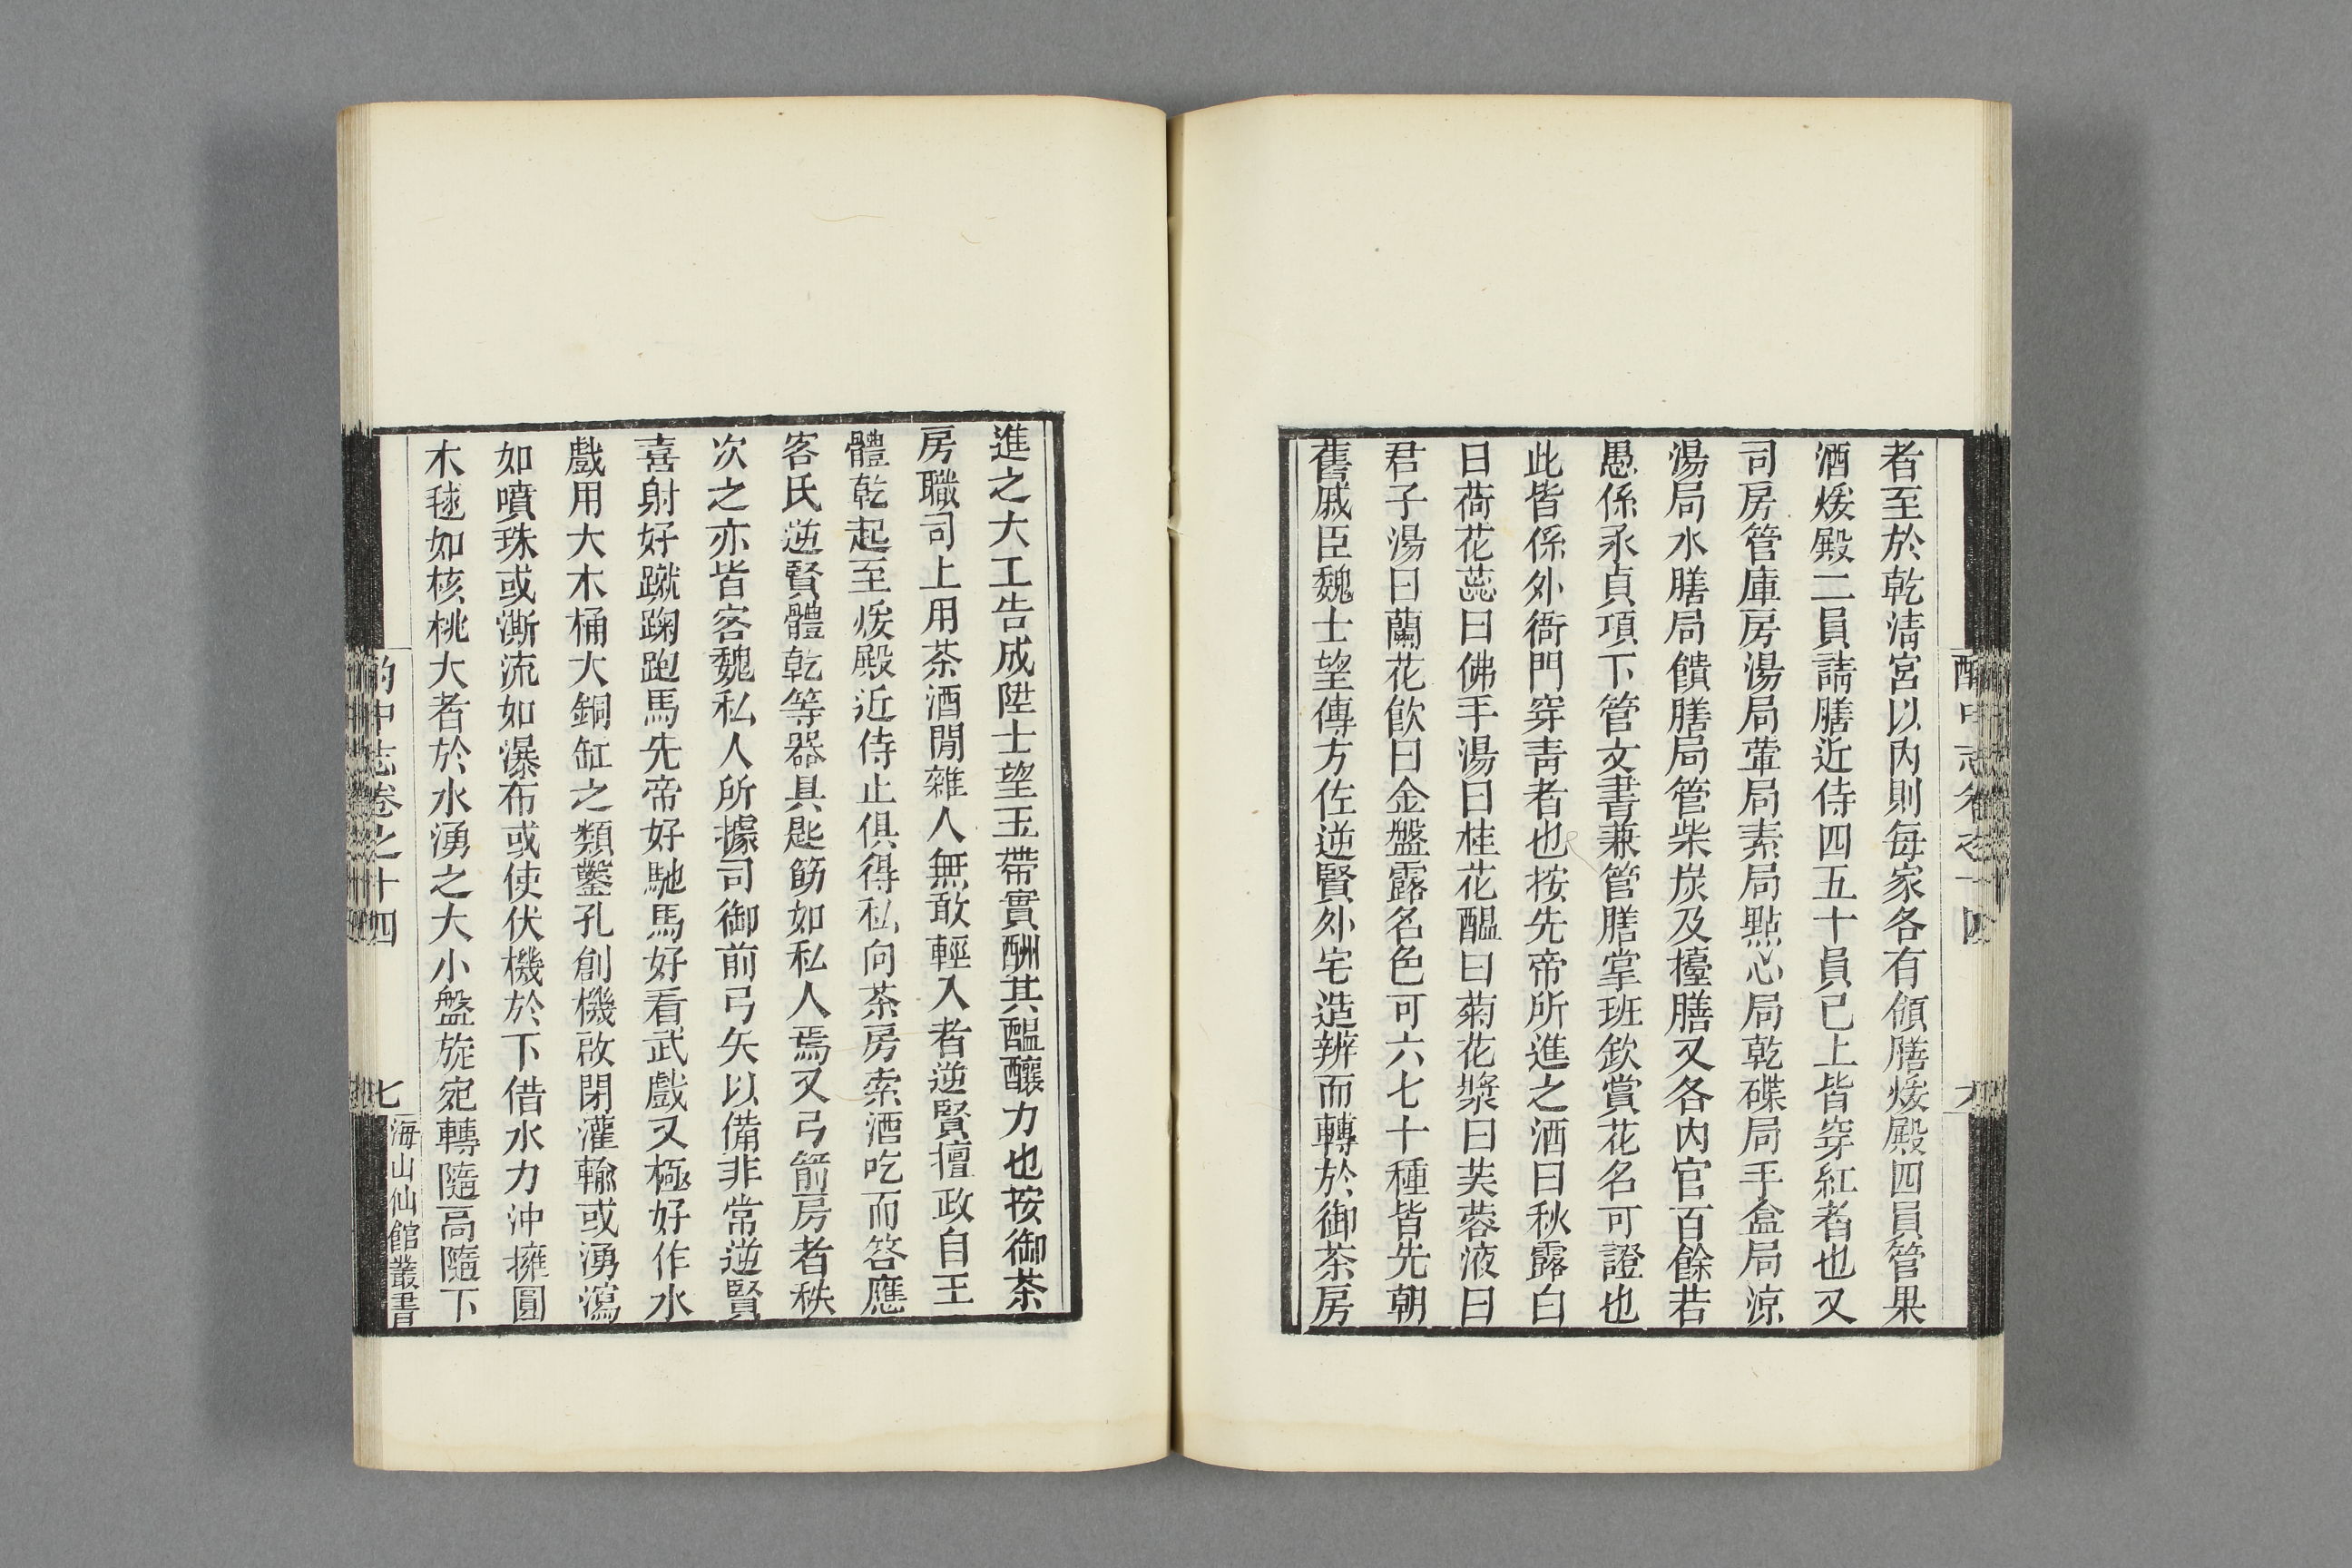 者至於乾淸宮以內則每家各有領膳煖殿四員管果
酒煖殿二員請膳近侍四五十員已上皆穿紅者也又
司房管庫房湯局葷局素局㸃心局乾碟局手盒局凉
湯局水膳局饋膳局管柴炭及擡膳又各內官百餘若
愚係永貞項下管文書兼管膳掌班欽賞花名可證也
此皆係外衙門穿靑者也按先帝所進之酒曰秋露白
曰荷花蕊曰佛手湯曰桂花醞曰菊花漿曰芙蓉液曰
君子湯曰蘭花飮曰金盤露名色可六七十種皆先朝
舊戚臣魏士望傳方佐逆賢外宅造辨而轉於御茶房
進之大工告成陞士望玉帶實酬其醞釀力也按御茶
房職司上用茶酒閒雜人無敢輕入者逆賢擅政自王
體乾起至煖殿近侍止俱得私向茶房索酒吃而答應
客氏逆賢體乾等器具匙筯如私人焉又弓箭房者秩
次之亦皆客魏私人所據司御前弓矢以備非常逆賢
喜射好蹴踘跑馬先帝好馳馬好看武戲又極好作水
戲用大木桶大銅缸之類鑿孔創機啟閉灌輸或湧瀉
如噴珠或澌流如瀑布或使伏機於下借水力沖擁圓
木毬如核桃大者於水湧之大小盤旋宛轉隨高隨下
酌中志卷之十四
七
海山仙館叢書